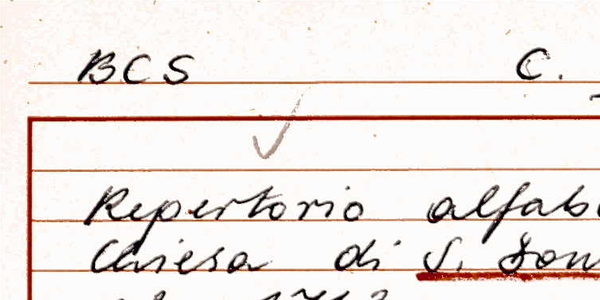 BCS C.
Repertorio alfab
Chiesa di S.